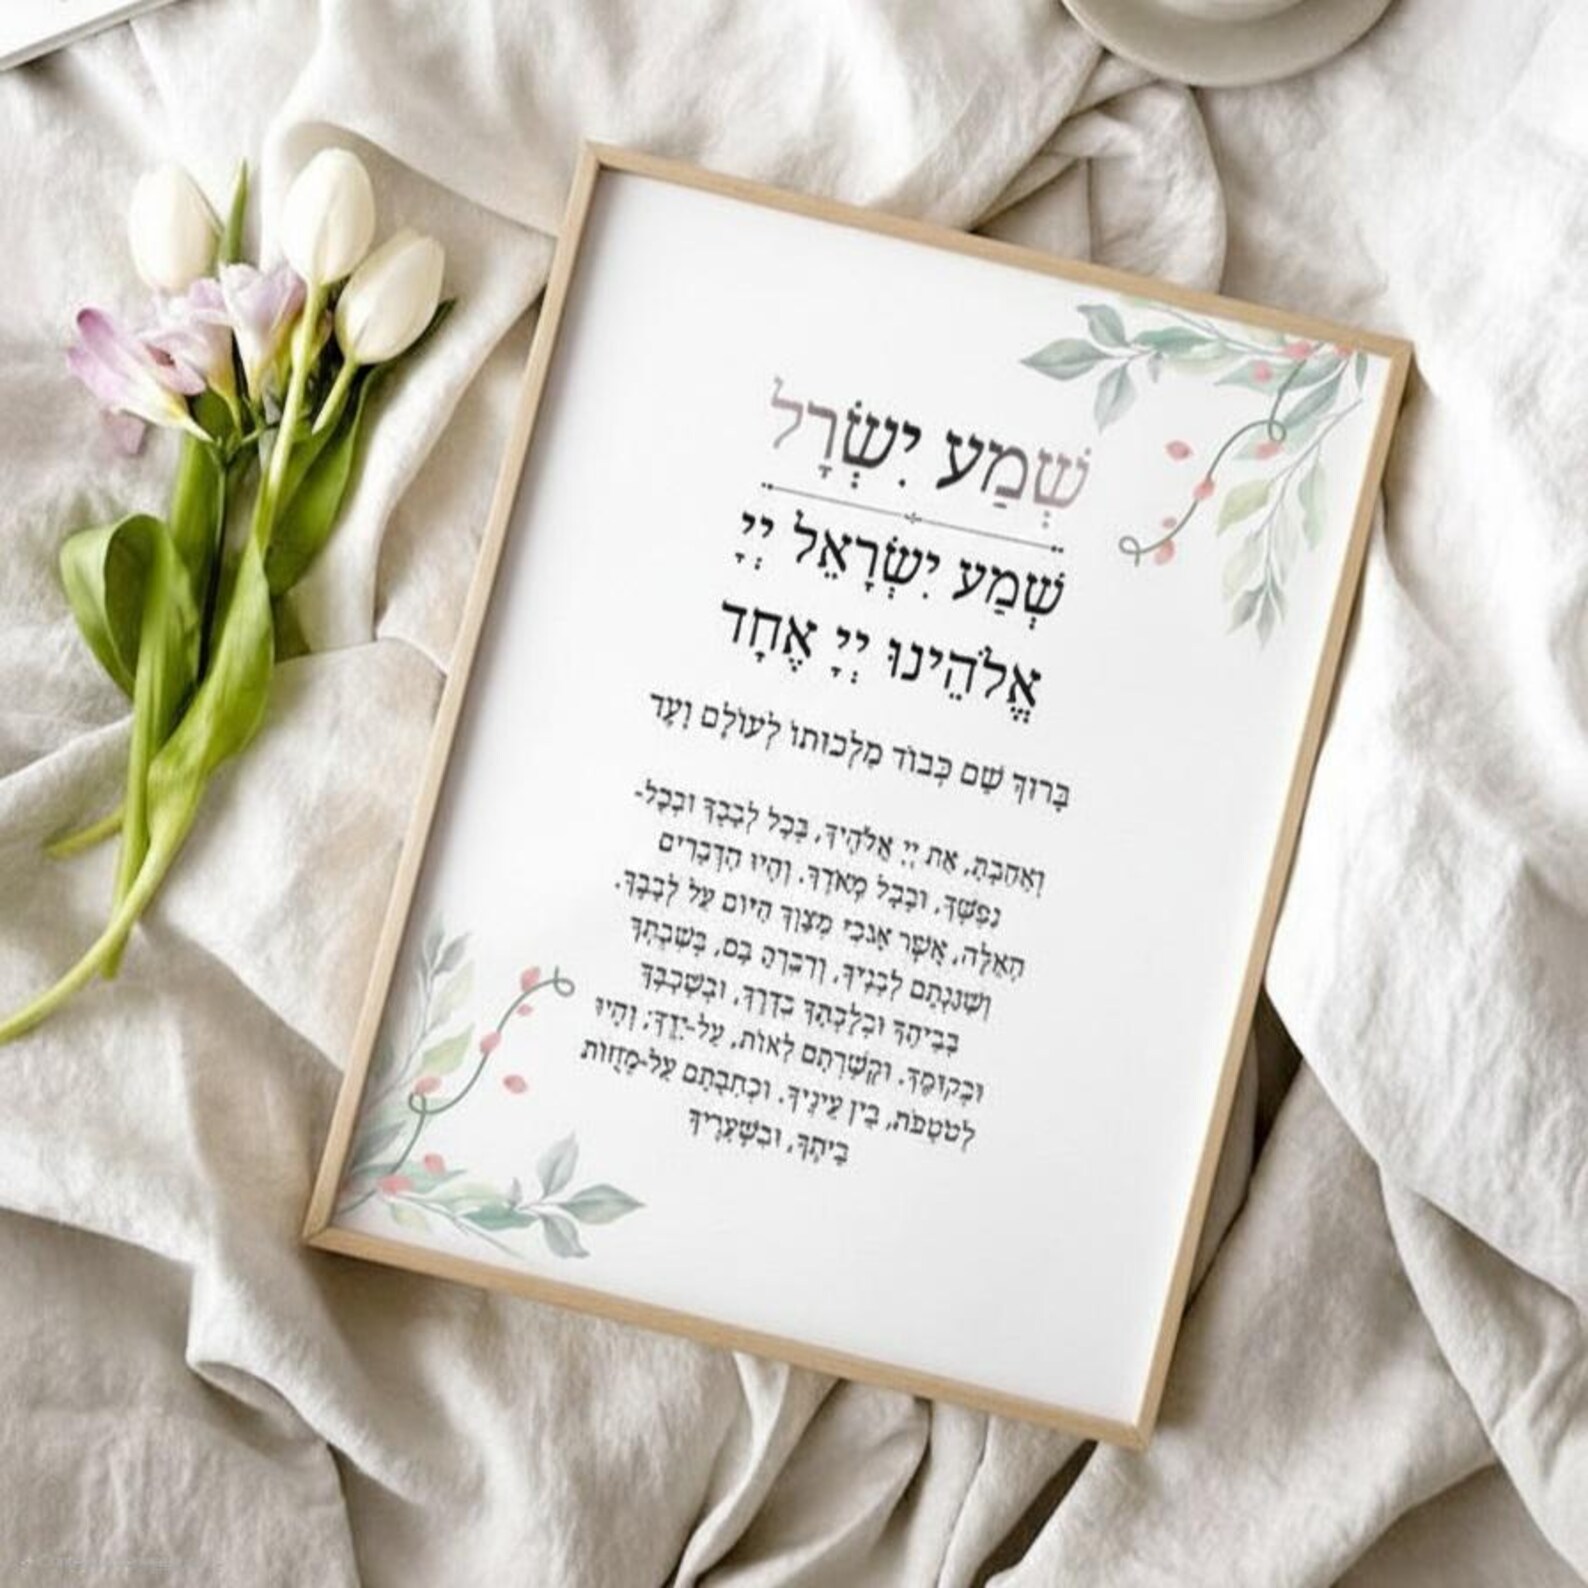 שְׁמַע יִשְׂרָל
שְׁמַע יִשְׂרָאֵל יְיָ
אֱלֹהֵינוּ יְיָ אֶחָד
בָּרוּךְ שֵׁם כְּבוֹד מַלְכוּתוֹ לְעוֹלָם וָעֶד
וְאָהַבְתָּ, אֵת יְיָ אֱלֹהֶיךָ, בְּכָל לְבָבְךָ וּבְכָל-
נַפְשְׁךָ, וּבְכָל מְאֹדֶךָ. וְהָיוּ הַדְּבָרִים
הָאֵלֶּה, אֲשֶׁר אָנֹכִי מְצַוְּךָ הַיּוֹם עַל לְבָבֶךָ.
וְשִׁנַּנְתָּם לְבָנֶיךָ, וְדִבַּרְתָּ בָּם, בְּשִׁבְתְּךָ
בְּבֵיתֶךָ וּבְלֶכְתְּךָ בַדֶּרֶךְ, וּבְשָׁכְבְּךָ
וּבְקוּמֶךָ. וּקְשַׁרְתָּם לְאוֹת, עַל-יָדֶךָ; וְהָיוּ
לְטֹטָפֹת, בֵּין עֵינֶיךָ. וּכְתַבְתָּם עַל-מְזֻזוֹת
בֵּיתֶךָ, וּבִשְׁעָרֶיךָ